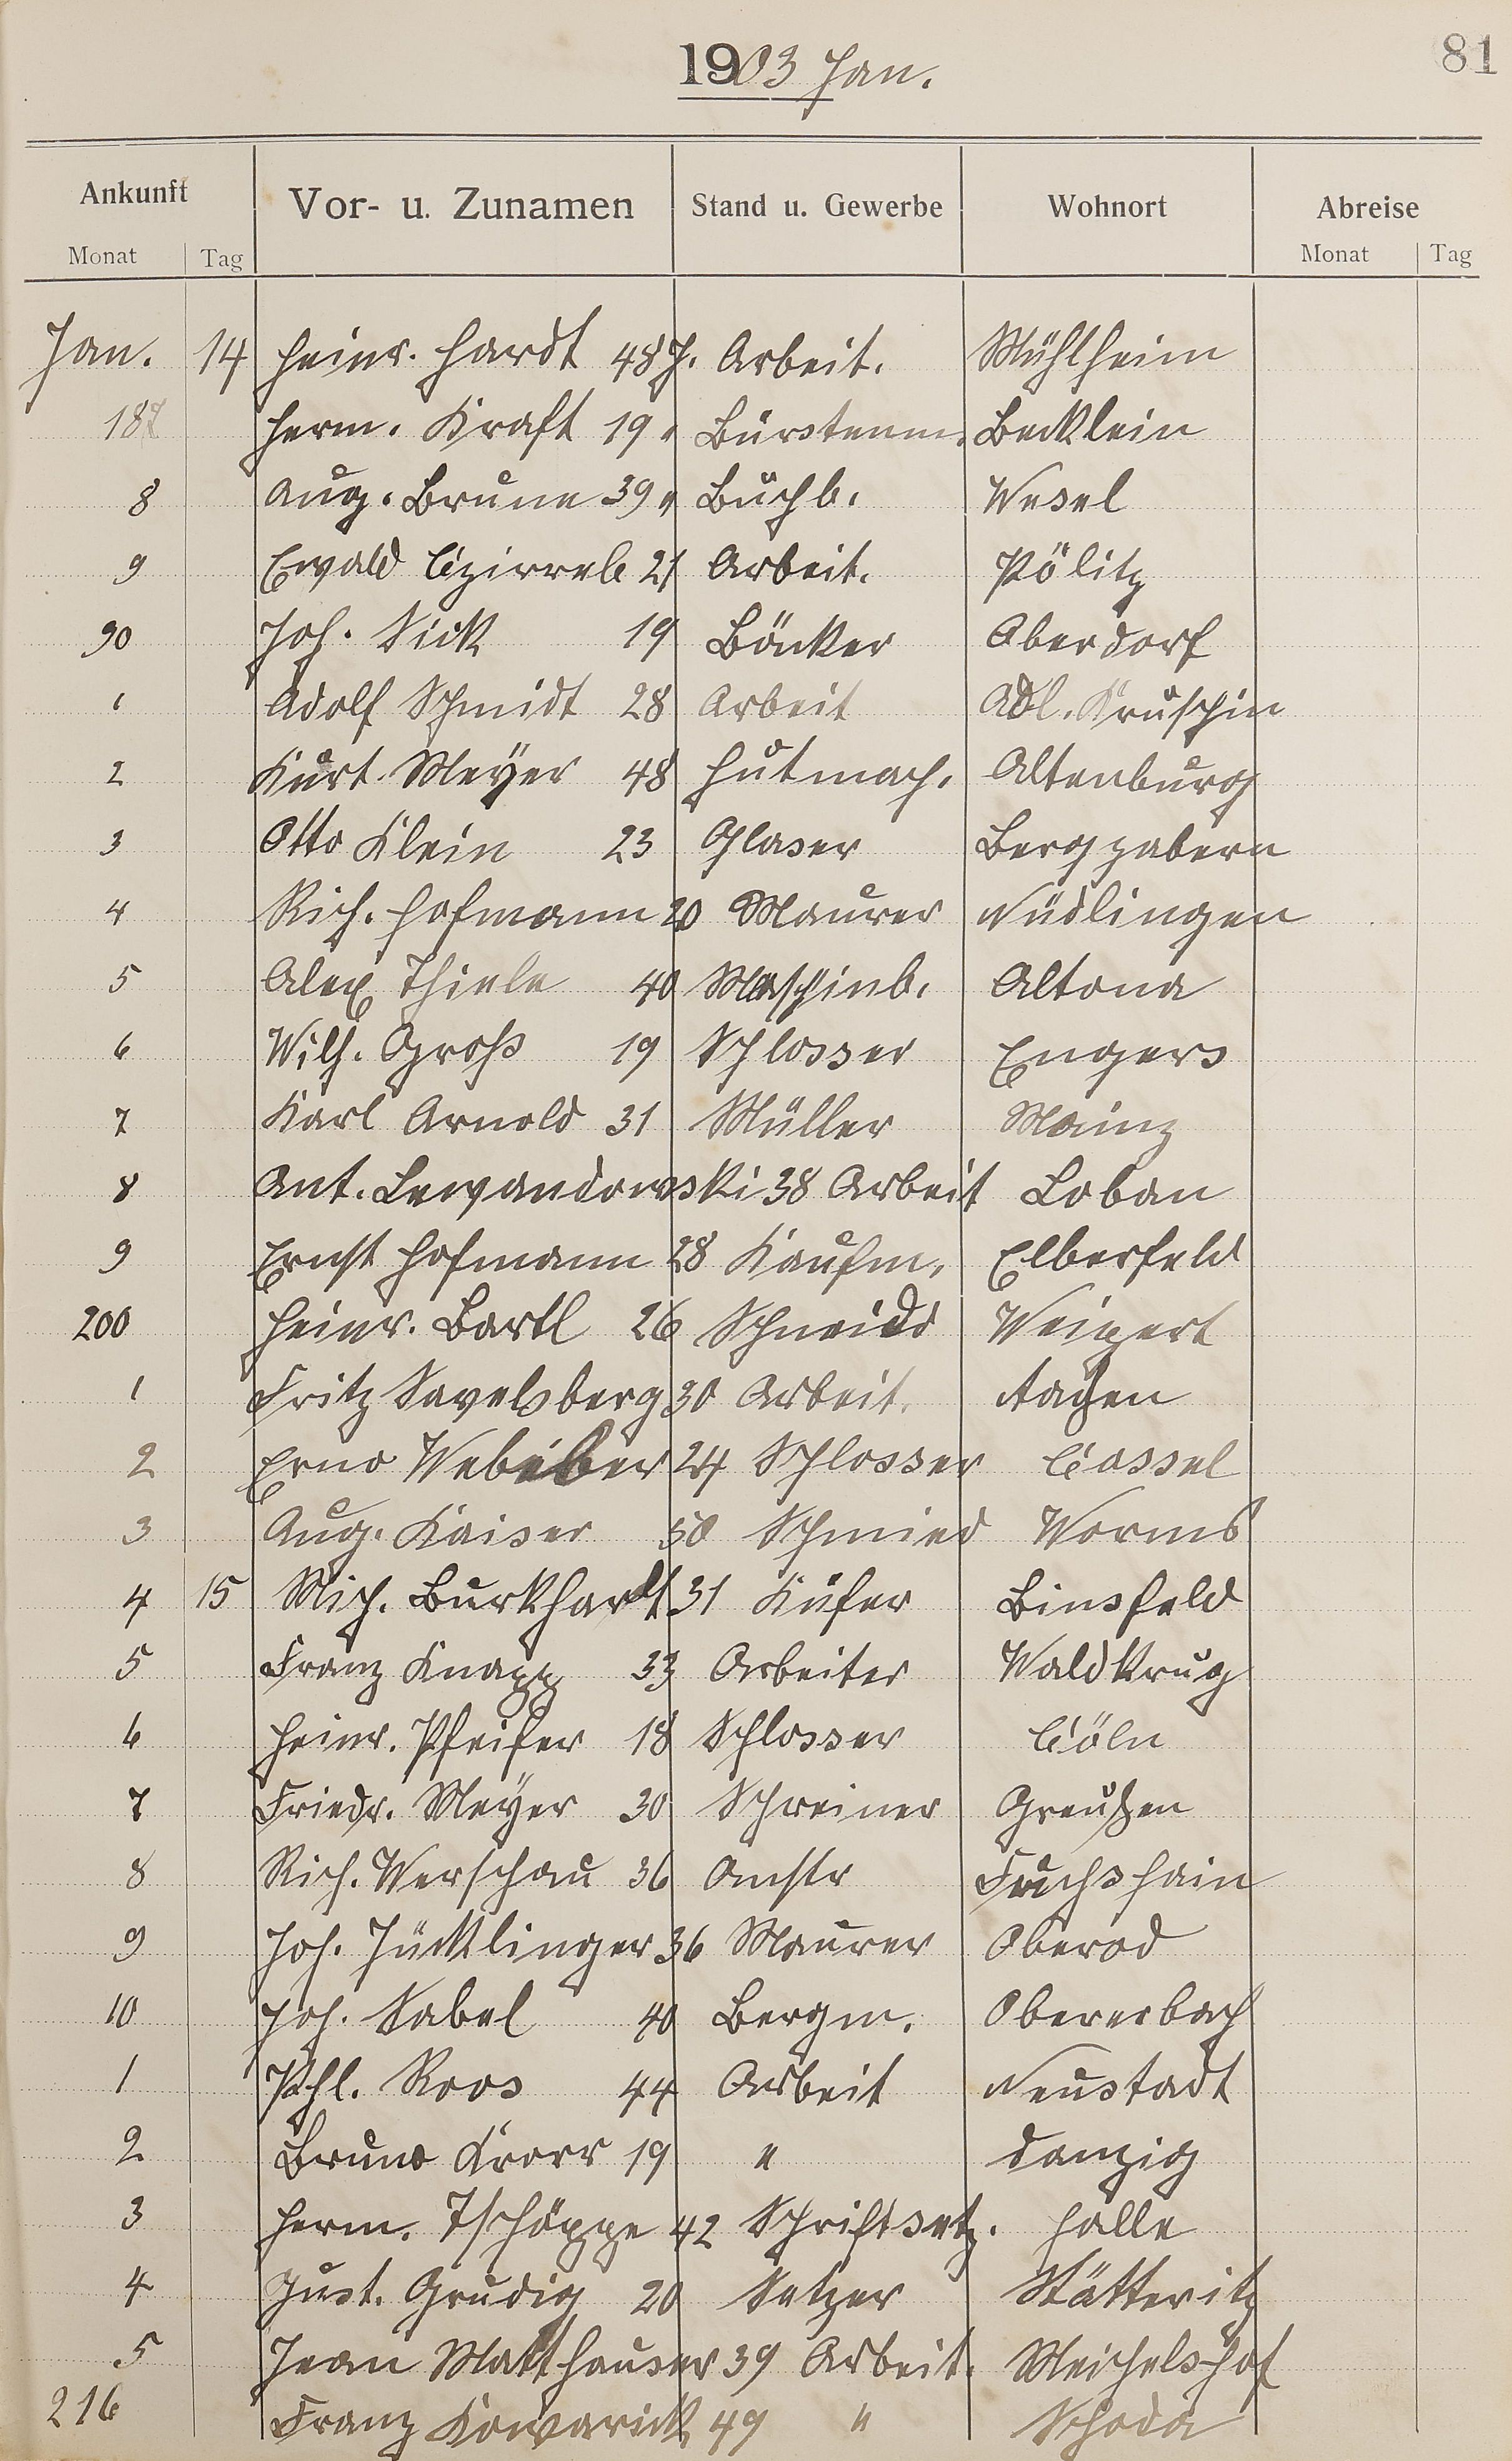 81
1903 Jan.
Ankunft Vor- u. Zunamen Stand u. Gewerbe Wohnort Abreise
Monat Tag Monat Tag
Jan. 14 Heinr. Hardt 48 J. Arbeit. Mühlheim
187 Herm. Kraft 19 " Bürstenm. Becklein
8 Aug. Brune 39 " Buchb. Wesel
9 Ewald 21 Arbeit. Pölitz
90 Joh. Sick 19 Bäcker Oberdorf
1 Adolf Schmidt 28 Arbeit Adl. Kruschin
2 Kurt Meÿer 48 Hutmach. Altenburg
3 Otto Klein 23 Glaser Bergzabern
4 Rich. Hofmann 20 Maurer Nüdlingen
5 Alex Thiele 40 Maschinb. Altona
6 Wilh. Groß 19 Schlosser Engers
7 Karl Arnold 31 Müller Mainz
8 Ant. Lewandowski 38 Arbeit Lobau
9 Ernst Hofmann 28 Kaufm. Elberfeld
200 Heinr. Bartl 26 Schneid Weipert
1 Fritz Savelsberg 30 Arbeit. Aachen
2 Erno 24 Schlosser Cassel
3 Aug. Kaiser 50 Schmied Worms
4 15 Mich. Burkhardt 31 Küfer Binsfeld
5 Franz Knapp 33 Arbeiter Waldkrug
6 Heinr. Pfeifer 18 Schlosser Cöln
7 Friedr. Meÿer 30 Schreiner Greußen
8 Rich. Werschau 36 Anstr Fuchshain
9 Joh. Jücklinger 36 Maurer Oberod
10 Joh. Sabel 40 Bergm. Obererbach
1 Phl. Roos 44 Arbeit Neustadt
2 Bruno Krorr 19 " Danzig
3 Herm. Tschöppe 42 Schriftsetz. Halle
4 Just. Grudig 20 Setzer Stötteritz
5 Jean Matthauser 39 Arbeit. Meichelshof
216 Franz Kowarick 49 " Schoda